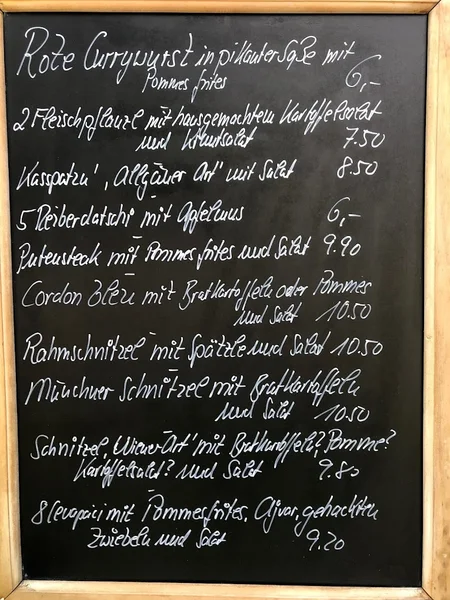 Rote Currywurst in pikanter Soße mit
Pommes frites 6,-
2 Fleischpflanzl mit hausgemachtem Kartoffelsalat
und Krautsalat 7.50
Kasspatzn' 'Allgäuer Art' mit Salat 8.50
5 Reiberdatschi mit Apfelmus 6,-
Putensteak mit Pommes frites und Salat 9.90
Cordon Bleu mit Bratkartoffeln oder Pommes
und Salat 10.50
Rahmschnitzel mit Spätzle und Salat 10.50
Münchner Schnitzel mit Bratkartoffeln
und Salat 10.50
Schnitzel 'Wiener-Art' mit Bratkartoffeln? Pomme?
Kartoffelsalat? und Salat 9.80
8 Cevapcici mit Pommes frites, Ajvar, gehackten
Zwiebeln und Salat 9.20